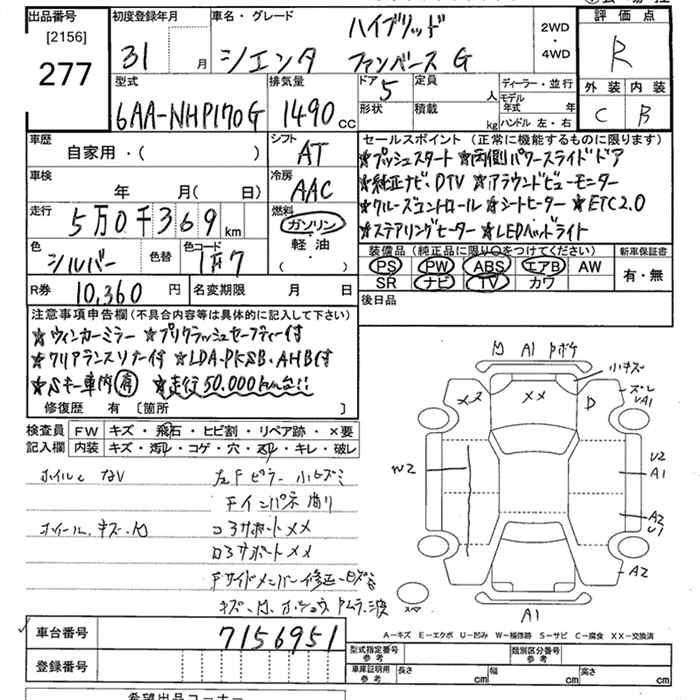 出品番号
[2156]
277
初度登録年月
31 月
車名・グレード
ハイブリッド
シエンタ ファンベース G
2WD
・
4WD
評価点
R
外装 内装
C B
型式
6AA-NHP170G
排気量
1490 cc
ドア
5
定員
人
形状
積載
kg
ディーラー・並行
モデル
年式 年
ハンドル 左・右
車歴
自家用・( )
シフト
AT
車検
年 月( 日)
冷房
AAC
走行
5万0千369 km
燃料
ガソリン
軽油
( ・ )
色
シルバー
色替
色コード
1F7
R券
10,360 円
名変期限 月 日
セールスポイント (正常に機能するものに限ります)
★プッシュスタート ★両側パワースライドドア
★純正ナビ、DTV ★アラウンドビューモニター
★クルーズコントロール ★シートヒーター ★ETC2.0
★ステアリングヒーター ★LEDヘッドライト
装備品 (純正品に限り〇をつけてください)
PS PW ABS エアB AW
SR ナビ TV カワ
新車保証書
有・無
後日品
注意事項申告欄(不具合内容等は具体的に記入して下さい)
★ウィンカーミラー ★プリクラッシュセーフティー付
★クリアランスソナー付 ★LDA、PKSB、AHB付
★Sキー車内有 ★走行50,000km台!!
修復歴 有 [箇所 ]
検査員
記入欄
FW キズ・飛石・ヒビ割・リペア跡・×要
内装 キズ・汚れ・コゲ・穴・スレ・キレ・破レ
左Fピラー 小ヒズミ
Fインパネ 曲り
ホイール、キズ、凹
コアサポート メメ
Fサイドメンバー修正
A1
小キズ
メメ
メメ
D
ズレ
UA1
W2
U2
A1
A2
U1
A2
スペア
A1
車台番号
7156951
登録番号
A－キズ E－エクボ U－凹み W－補修跡 S－サビ C－腐食 XX－交換済
型式指定番号
参考
類別区分番号
参考
車庫証明用
参考
長さ cm
幅 cm
高さ cm
希望出品コーナー